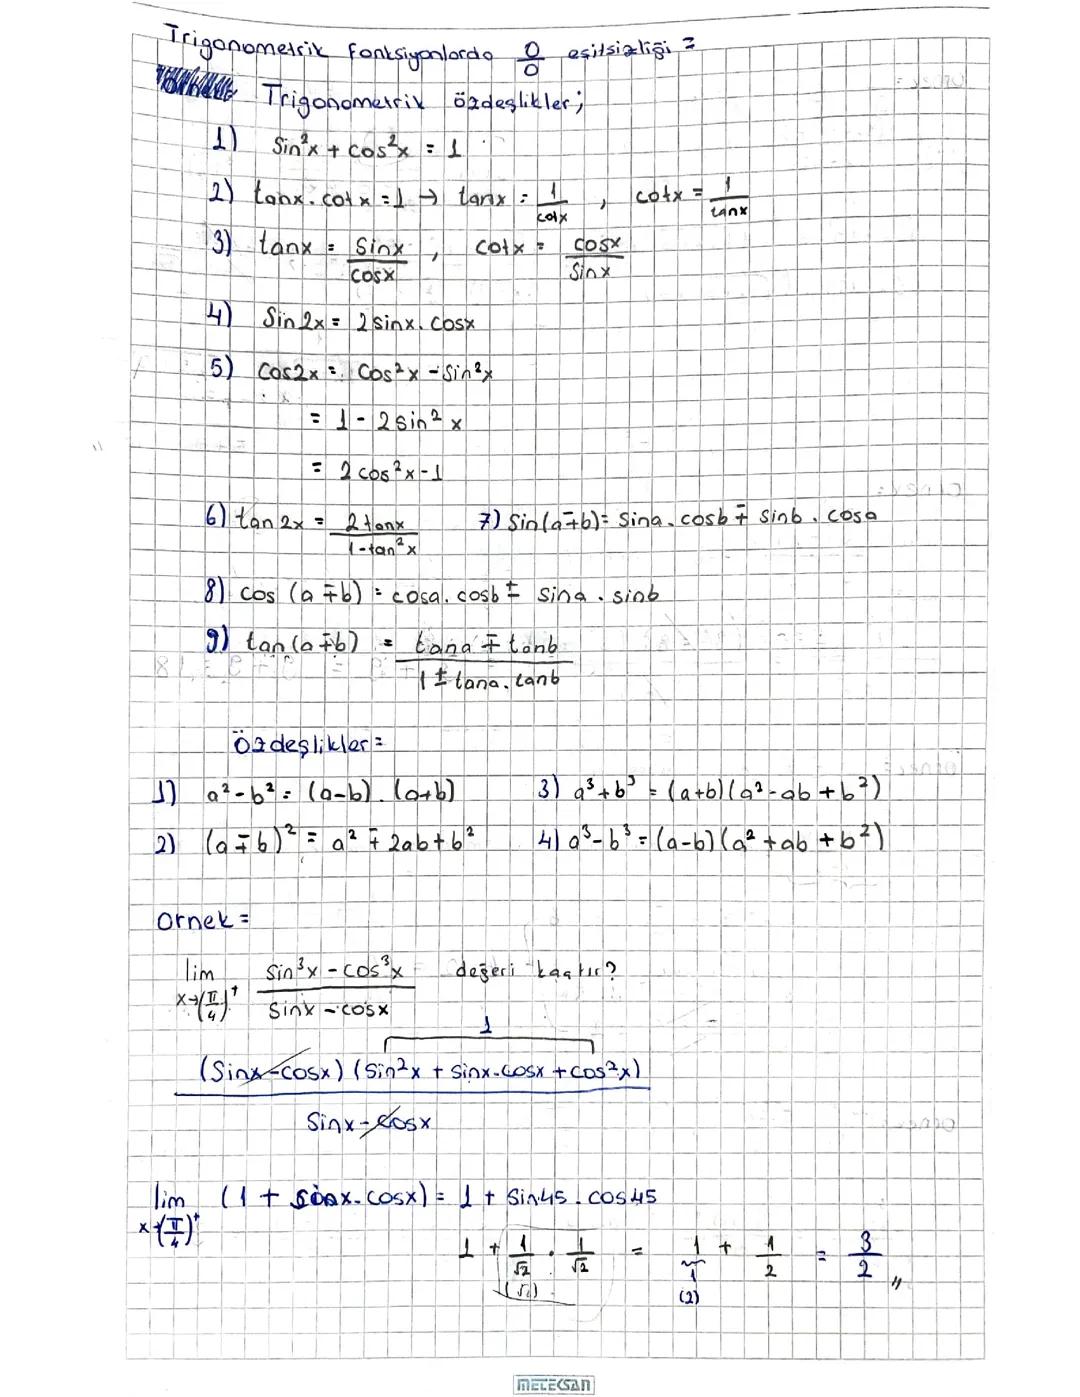 Trigonometrik fonksiyonlarda 0/0 eşitsizliği =
Trigonometrik özdeşlikler;
1) Sin²x + cos²x = 1
2) tanx . cotx = 1 → tanx = 1/cotx , cotx = 1/tanx
3) tanx = Sinx/cosx , cotx = cosx/Sinx
4) Sin2x = 2sinx . cosx
5) Cos2x = Cos²x - Sin²x
= 1 - 2sin²x
= 2cos²x - 1
6) tan2x = 2tanx/1-tan²x 7) Sin(a∓b) = Sina . cosb ∓ sinb . cosa
8) cos (a∓b) = cosa . cosb ± sina . sinb
9) tan(a∓b) = tana ∓ tanb/1 ± tana . tanb
Özdeşlikler =
1) a² - b² = (a-b) . (a+b) 3) a³ + b³ = (a+b)(a² - ab + b²)
2) (a∓b)² = a² ∓ 2ab + b² 4) a³ - b³ = (a-b)(a² + ab + b²)
Ornek =
lim x→(π/4)⁺ Sin³x - cos³x/Sinx - cosx değeri kaçtır?
1
(Sinx - cosx) (Sin²x + sinx . cosx + cos²x)
Sinx - cosx
lim x→(π/4)⁺ (1 + sinx . cosx) = 1 + Sin45 . cos45
1 + 1/√2 . 1/√2 = 1/1 + 1/2 = 3/2 //
(√2) (2)
METEKSAN